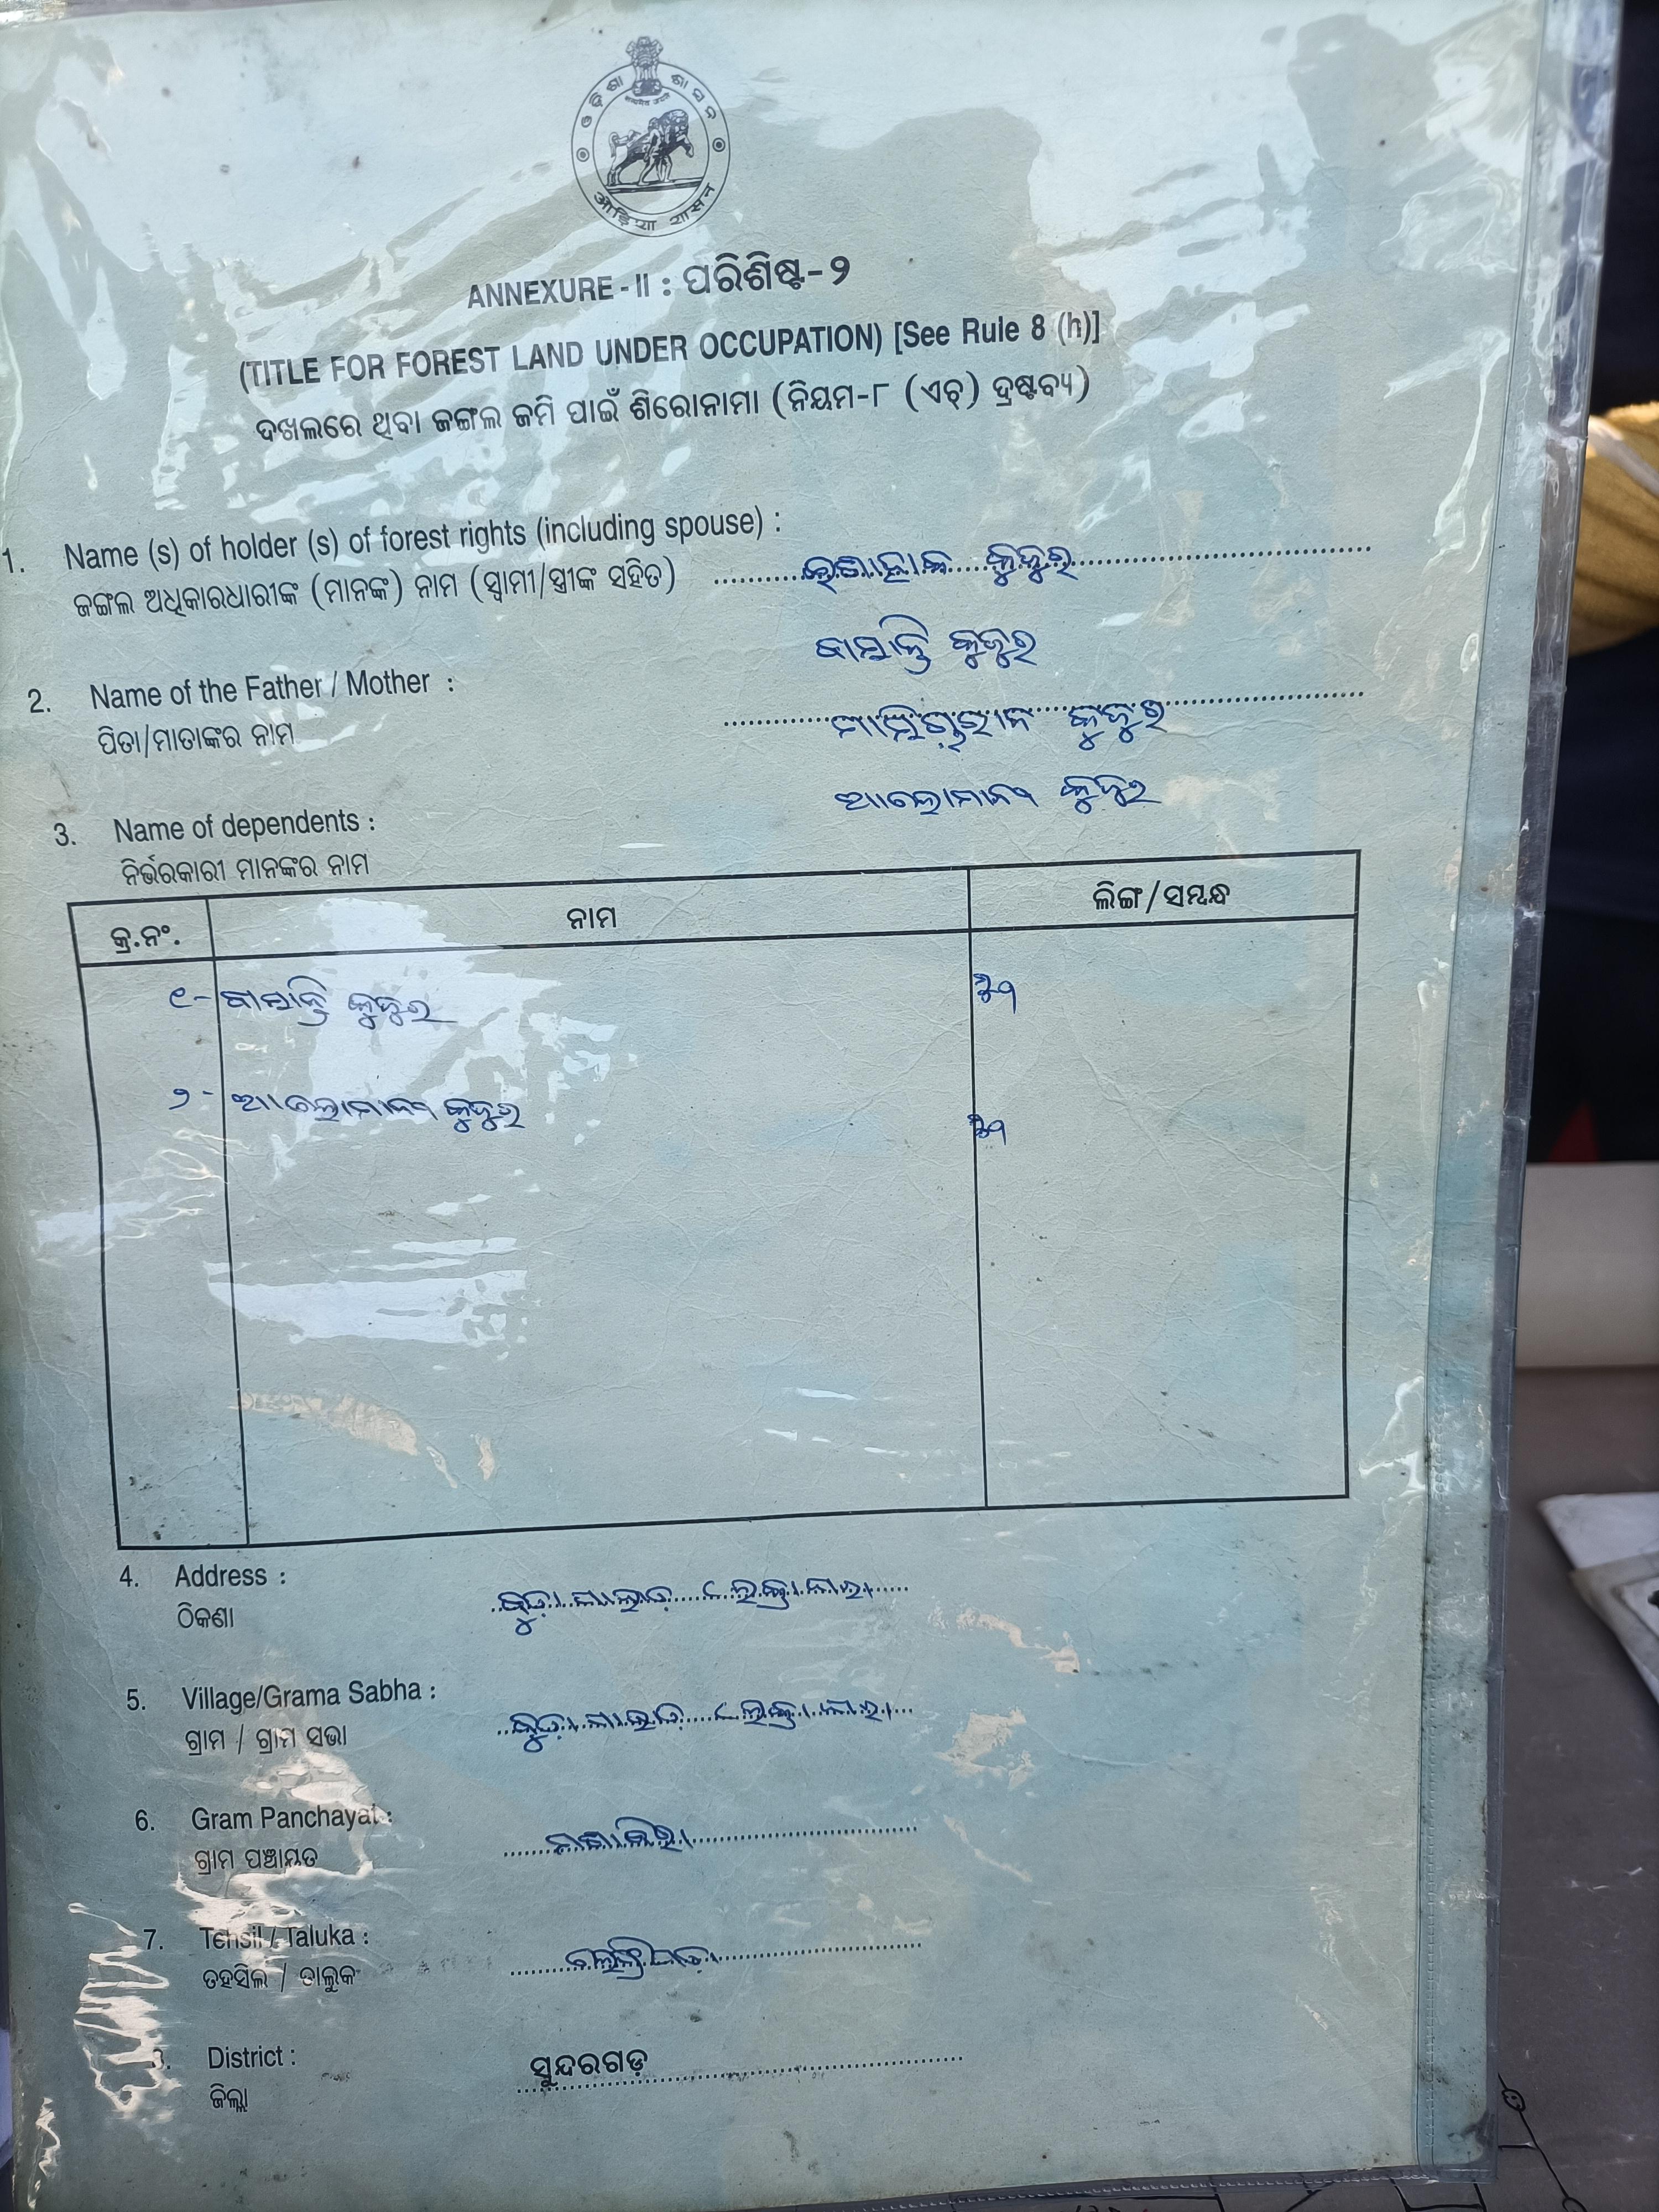 ଓଡ଼ିଶା ଶାସନ
सत्यमेव जयते
ओड़िशा शासन
ANNEXURE - II : ପରିଶିଷ୍ଟ-୨
(TITLE FOR FOREST LAND UNDER OCCUPATION) [See Rule 8 (h)]
ଦଖଲରେ ଥିବା ଜଙ୍ଗଲ ଜମି ପାଇଁ ଶିରୋନାମା (ନିୟମ-୮ (ଏଚ୍) ଦ୍ରଷ୍ଟବ୍ୟ)
1. Name (s) of holder (s) of forest rights (including spouse) :
ଜଙ୍ଗଲ ଅଧିକାରଧାରୀଙ୍କ (ମାନଙ୍କ) ନାମ (ସ୍ୱାମୀ/ସ୍ତ୍ରୀଙ୍କ ସହିତ) କୁଜୁର
କୁଜୁର
2. Name of the Father / Mother :
ପିତା/ମାତାଙ୍କର ନାମ କୁଜୁର
କୁଜୁର
3. Name of dependents :
ନିର୍ଭରକାରୀ ମାନଙ୍କର ନାମ
କ୍ର.ନଂ. ନାମ ଲିଙ୍ଗ/ସମ୍ବନ୍ଧ
୧- କୁଜୁର
୨- କୁଜୁର
4. Address :
ଠିକଣା
5. Village/Grama Sabha :
ଗ୍ରାମ / ଗ୍ରାମ ସଭା
6. Gram Panchayat :
ଗ୍ରାମ ପଞ୍ଚାୟତ
7. Tehsil / Taluka :
ତହସିଲ / ତାଲୁକ
8. District :
ଜିଲ୍ଲା ସୁନ୍ଦରଗଡ଼